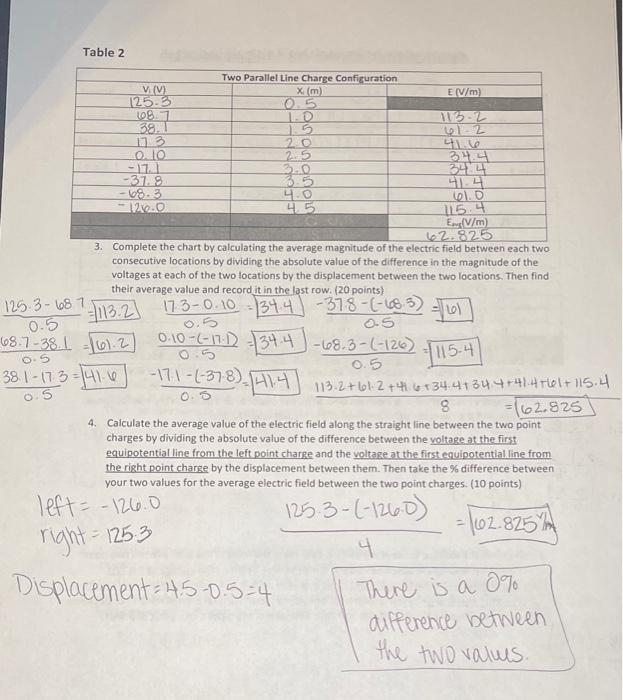 Table 2
Two Parallel Line Charge Configuration
Vᵢ (V) Xᵢ (m) E (V/m)
125.3 0.5
68.7 1.0 113.2
38.1 1.5 61.2
17.3 2.0 41.6
0.10 2.5 34.4
-17.1 3.0 34.4
-37.8 3.5 41.4
-68.3 4.0 61.0
-126.0 4.5 115.4
Eavg(V/m)
62.825
3. Complete the chart by calculating the average magnitude of the electric field between each two
consecutive locations by dividing the absolute value of the difference in the magnitude of the
voltages at each of the two locations by the displacement between the two locations. Then find
their average value and record it in the last row. (20 points)
125.3-68.7 = 113.2 17.3-0.10 = 34.4 -37.8-(-68.3) = 61
0.5 0.5 0.5
68.7-38.1 = 61.2 0.10-(-17.1) = 34.4 -68.3-(-126) = 115.4
0.5 0.5 0.5
38.1-17.3 = 41.6 -17.1-(-37.8) = 41.4 113.2+61.2+41.6+34.4+34.4+41.4+61+115.4
0.5 0.5 8 = 62.825
4. Calculate the average value of the electric field along the straight line between the two point
charges by dividing the absolute value of the difference between the voltage at the first
equipotential line from the left point charge and the voltage at the first equipotential line from
the right point charge by the displacement between them. Then take the % difference between
your two values for the average electric field between the two point charges. (10 points)
left = -126.0 125.3-(-126.0) = 62.825 V/m
right = 125.3 4
Displacement = 4.5-0.5 = 4
There is a 0%
difference between
the two values.